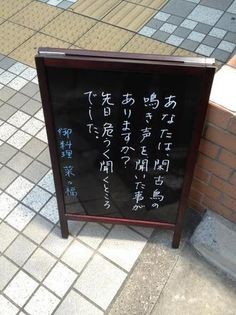 あなたは、閑古鳥の
鳴き声を聞いた事が
ありますか?
先日 危うく聞くところ
でした。
御料理 菜の福